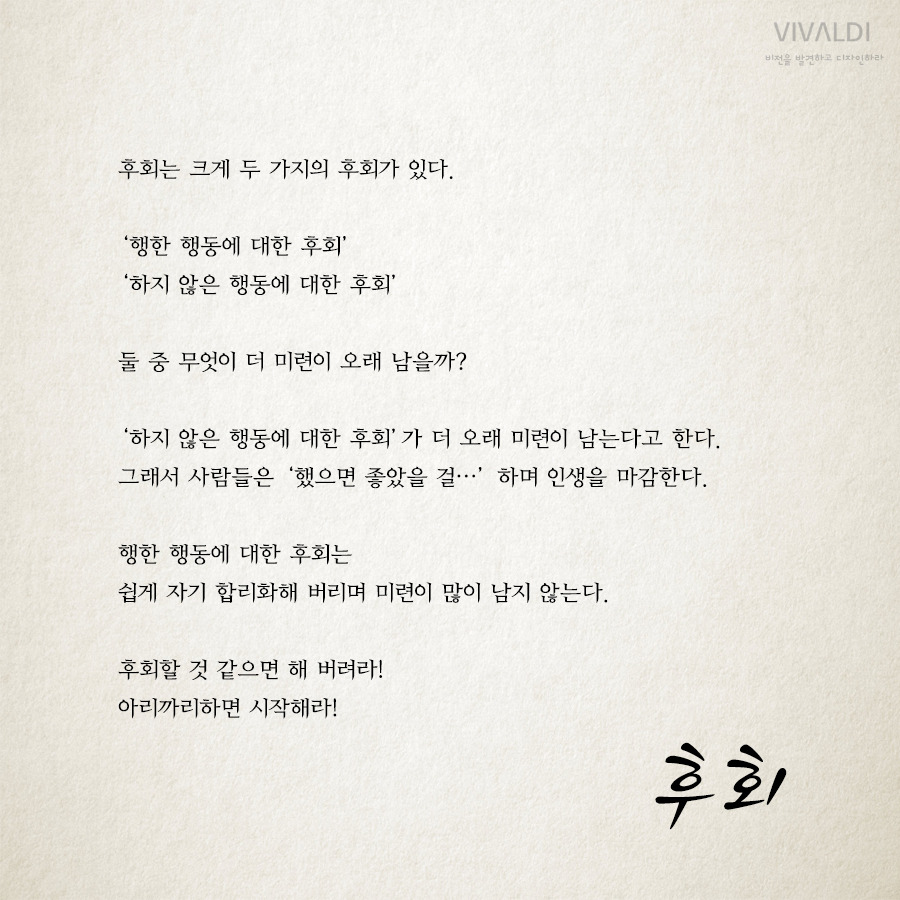 VIVALDI
비전을 발견하고 디자인하라
후회는 크게 두 가지의 후회가 있다.
‘행한 행동에 대한 후회’
‘하지 않은 행동에 대한 후회’
둘 중 무엇이 더 미련이 오래 남을까?
‘하지 않은 행동에 대한 후회’가 더 오래 미련이 남는다고 한다.
그래서 사람들은 ‘했으면 좋았을 걸…’ 하며 인생을 마감한다.
행한 행동에 대한 후회는
쉽게 자기 합리화해 버리며 미련이 많이 남지 않는다.
후회할 것 같으면 해 버려라!
아리까리하면 시작해라!
후회